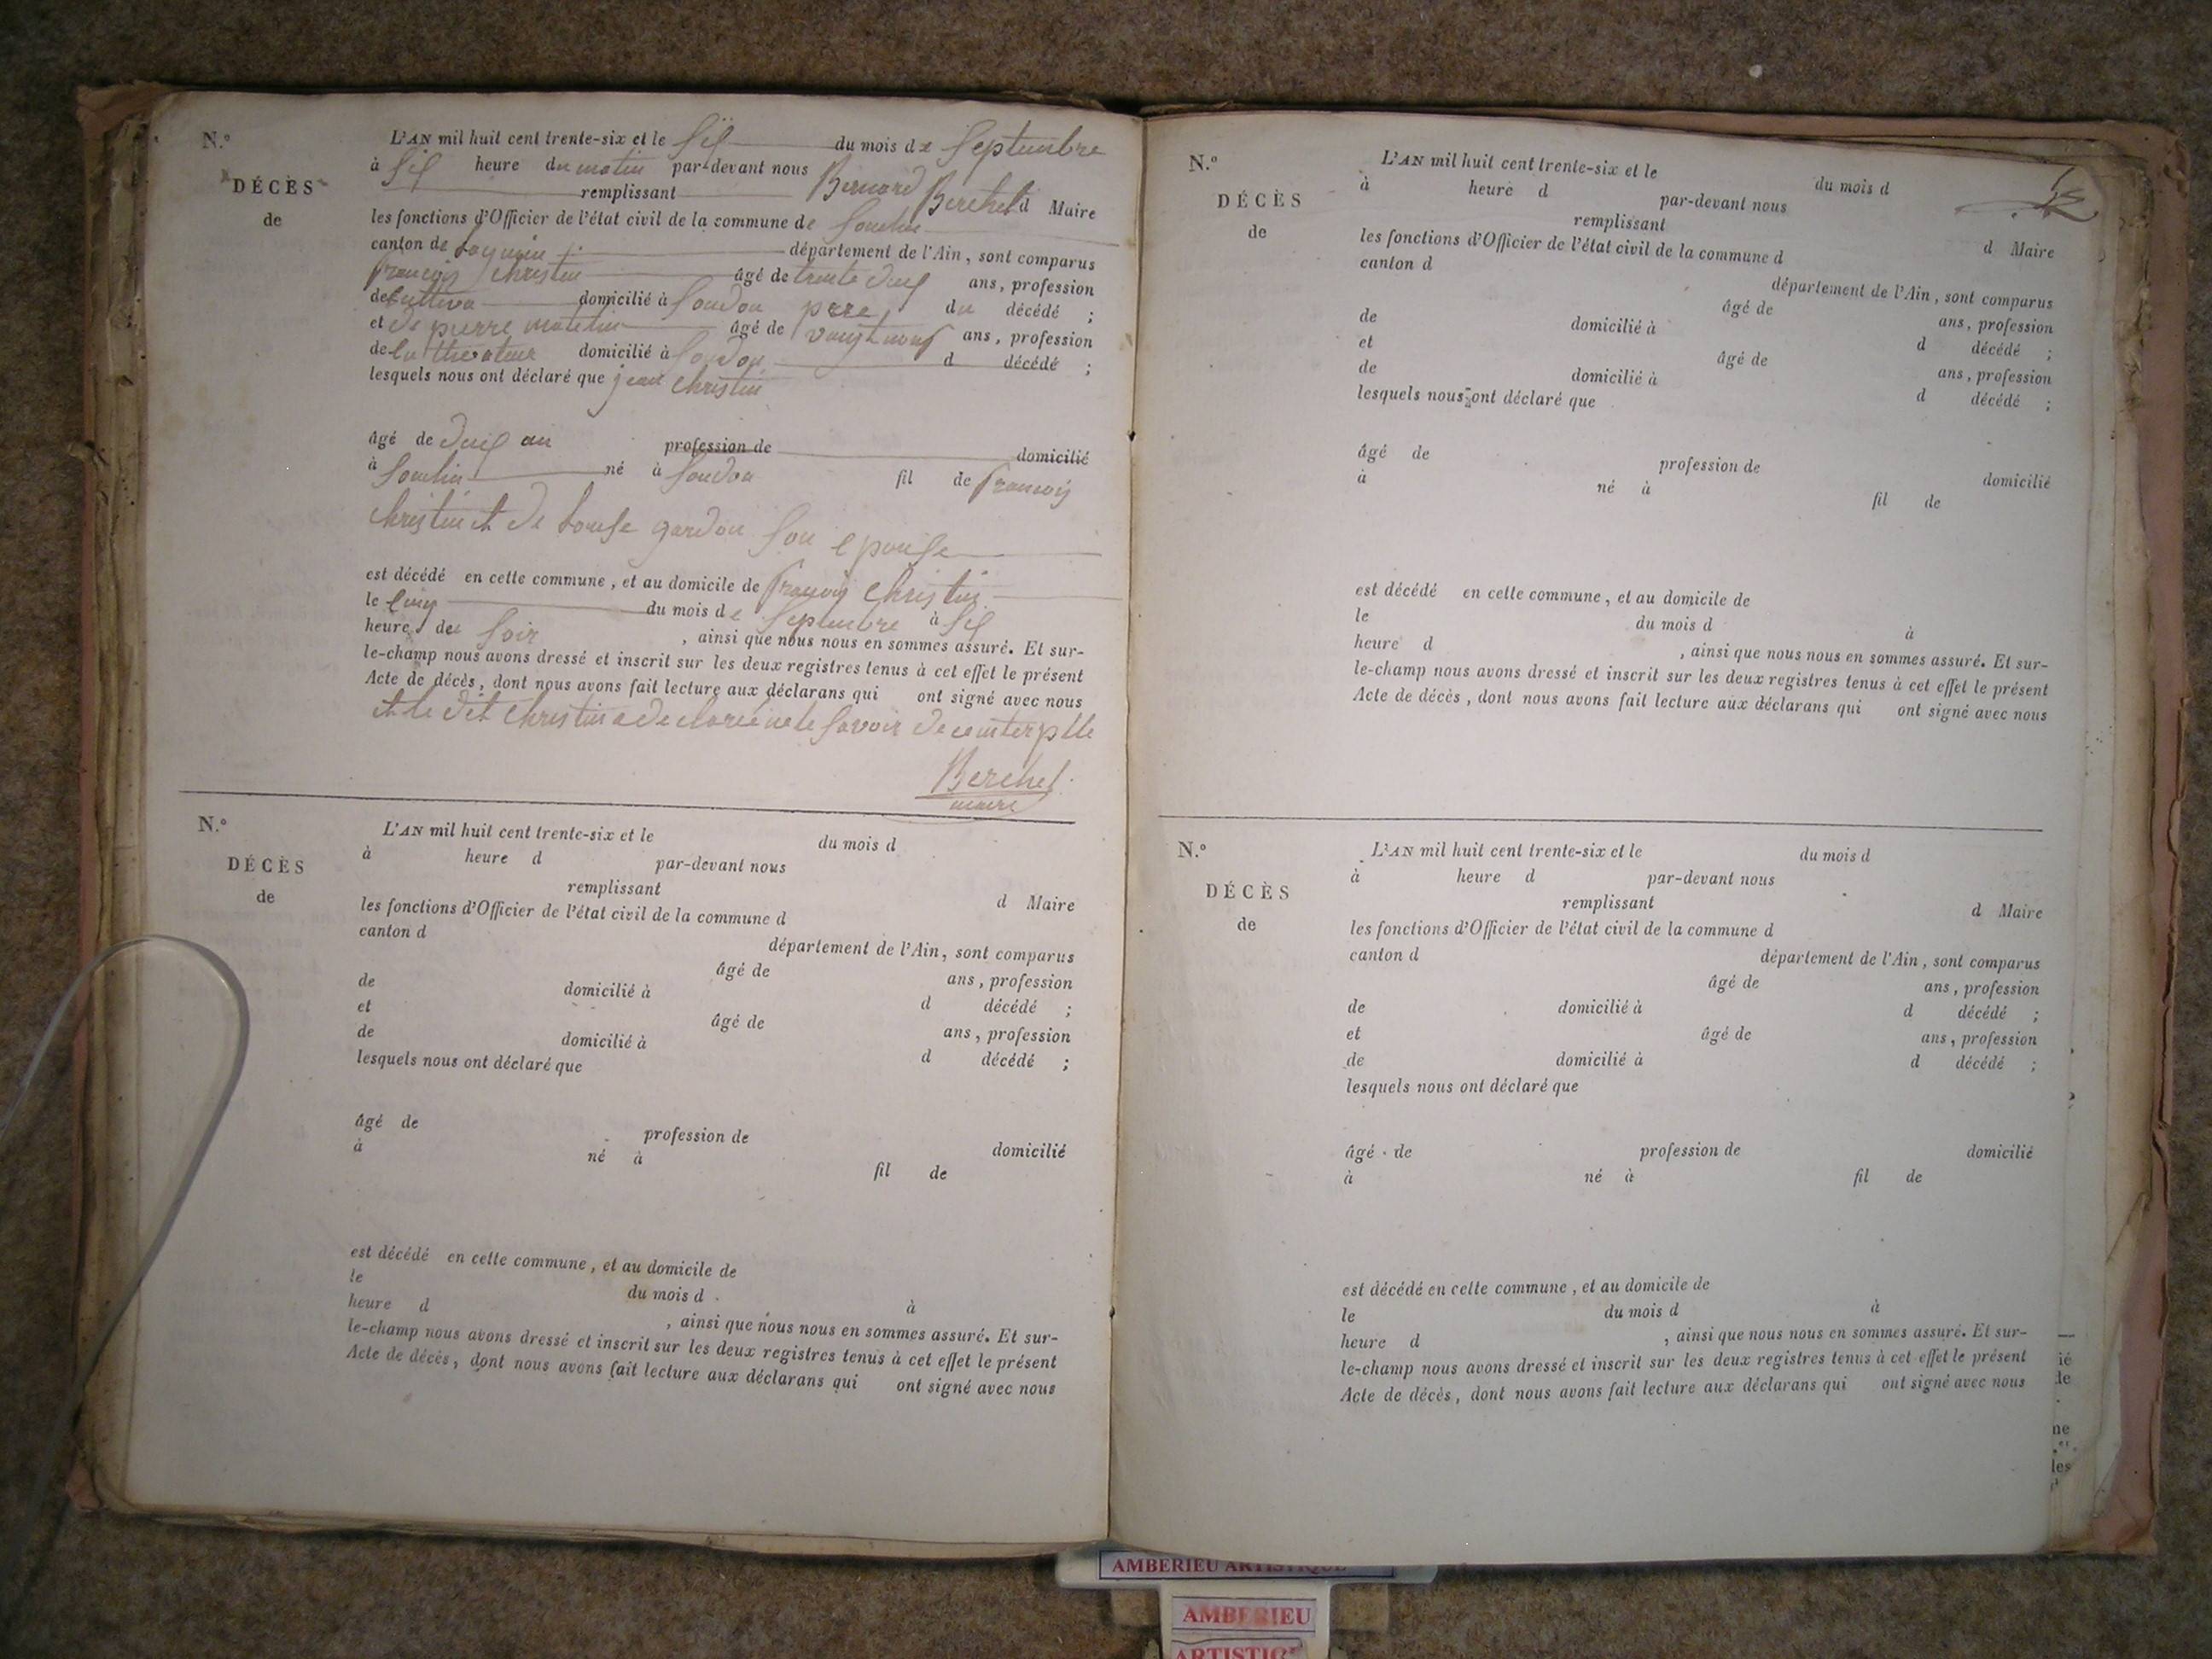 N.º
DÉCÈS
de
L'AN mil huit cent trente-six et le Sis du mois de Septembre
à Sis heure du matin par-devant nous Bernard Berchet
remplissant d Maire
les fonctions d'Officier de l'état civil de la commune de
canton de département de l'Ain, sont comparus
françois Christin âgé de trente deus ans, profession
de domicilié à Soudon père du décédé ;
et de pierre âgé de vaingt nouf ans, profession
de domicilié à Soudon d décédé ;
lesquels nous ont déclaré que jean Christin
âgé de deus an profession de domicilié
à né à Soudon fil de francois
Christin et de gardon Son epouse
est décédé en cette commune, et au domicile de francois Christin
le cinq du mois de Septembre à Sis
heure de Soir , ainsi que nous nous en sommes assuré. Et sur-
le-champ nous avons dressé et inscrit sur les deux registres tenus à cet effet le présent
Acte de décès, dont nous avons fait lecture aux déclarans qui ont signé avec nous
et le dit Christin a declaré ne le Savoir de ce
Berchet
maire
N.º
DÉCÈS
de
L'AN mil huit cent trente-six et le du mois d
à heure d par-devant nous
remplissant d Maire
les fonctions d'Officier de l'état civil de la commune d
canton d département de l'Ain, sont comparus
âgé de ans, profession
de domicilié à d décédé ;
et âgé de ans, profession
de domicilié à d décédé ;
lesquels nous ont déclaré que
âgé de profession de domicilié
à né à fil de
est décédé en cette commune, et au domicile de
le du mois d à
heure d , ainsi que nous nous en sommes assuré. Et sur-
le-champ nous avons dressé et inscrit sur les deux registres tenus à cet effet le présent
Acte de décès, dont nous avons fait lecture aux déclarans qui ont signé avec nous
N.º
DÉCÈS
de
L'AN mil huit cent trente-six et le du mois d
à heure d par-devant nous
remplissant d Maire
les fonctions d'Officier de l'état civil de la commune d
canton d département de l'Ain, sont comparus
âgé de ans, profession
de domicilié à d décédé ;
et âgé de ans, profession
de domicilié à d décédé ;
lesquels nous ont déclaré que
âgé de profession de domicilié
à né à fil de
est décédé en cette commune, et au domicile de
le du mois d à
heure d , ainsi que nous nous en sommes assuré. Et sur-
le-champ nous avons dressé et inscrit sur les deux registres tenus à cet effet le présent
Acte de décès, dont nous avons fait lecture aux déclarans qui ont signé avec nous
N.º
DÉCÈS
de
L'AN mil huit cent trente-six et le du mois d
à heure d par-devant nous
remplissant d Maire
les fonctions d'Officier de l'état civil de la commune d
canton d département de l'Ain, sont comparus
âgé de ans, profession
de domicilié à d décédé ;
et âgé de ans, profession
de domicilié à d décédé ;
lesquels nous ont déclaré que
âgé de profession de domicilié
à né à fil de
est décédé en cette commune, et au domicile de
le du mois d à
heure d , ainsi que nous nous en sommes assuré. Et sur-
le-champ nous avons dressé et inscrit sur les deux registres tenus à cet effet le présent
Acte de décès, dont nous avons fait lecture aux déclarans qui ont signé avec nous
AMBERIEU ARTISTIQUE
AMBERIEU